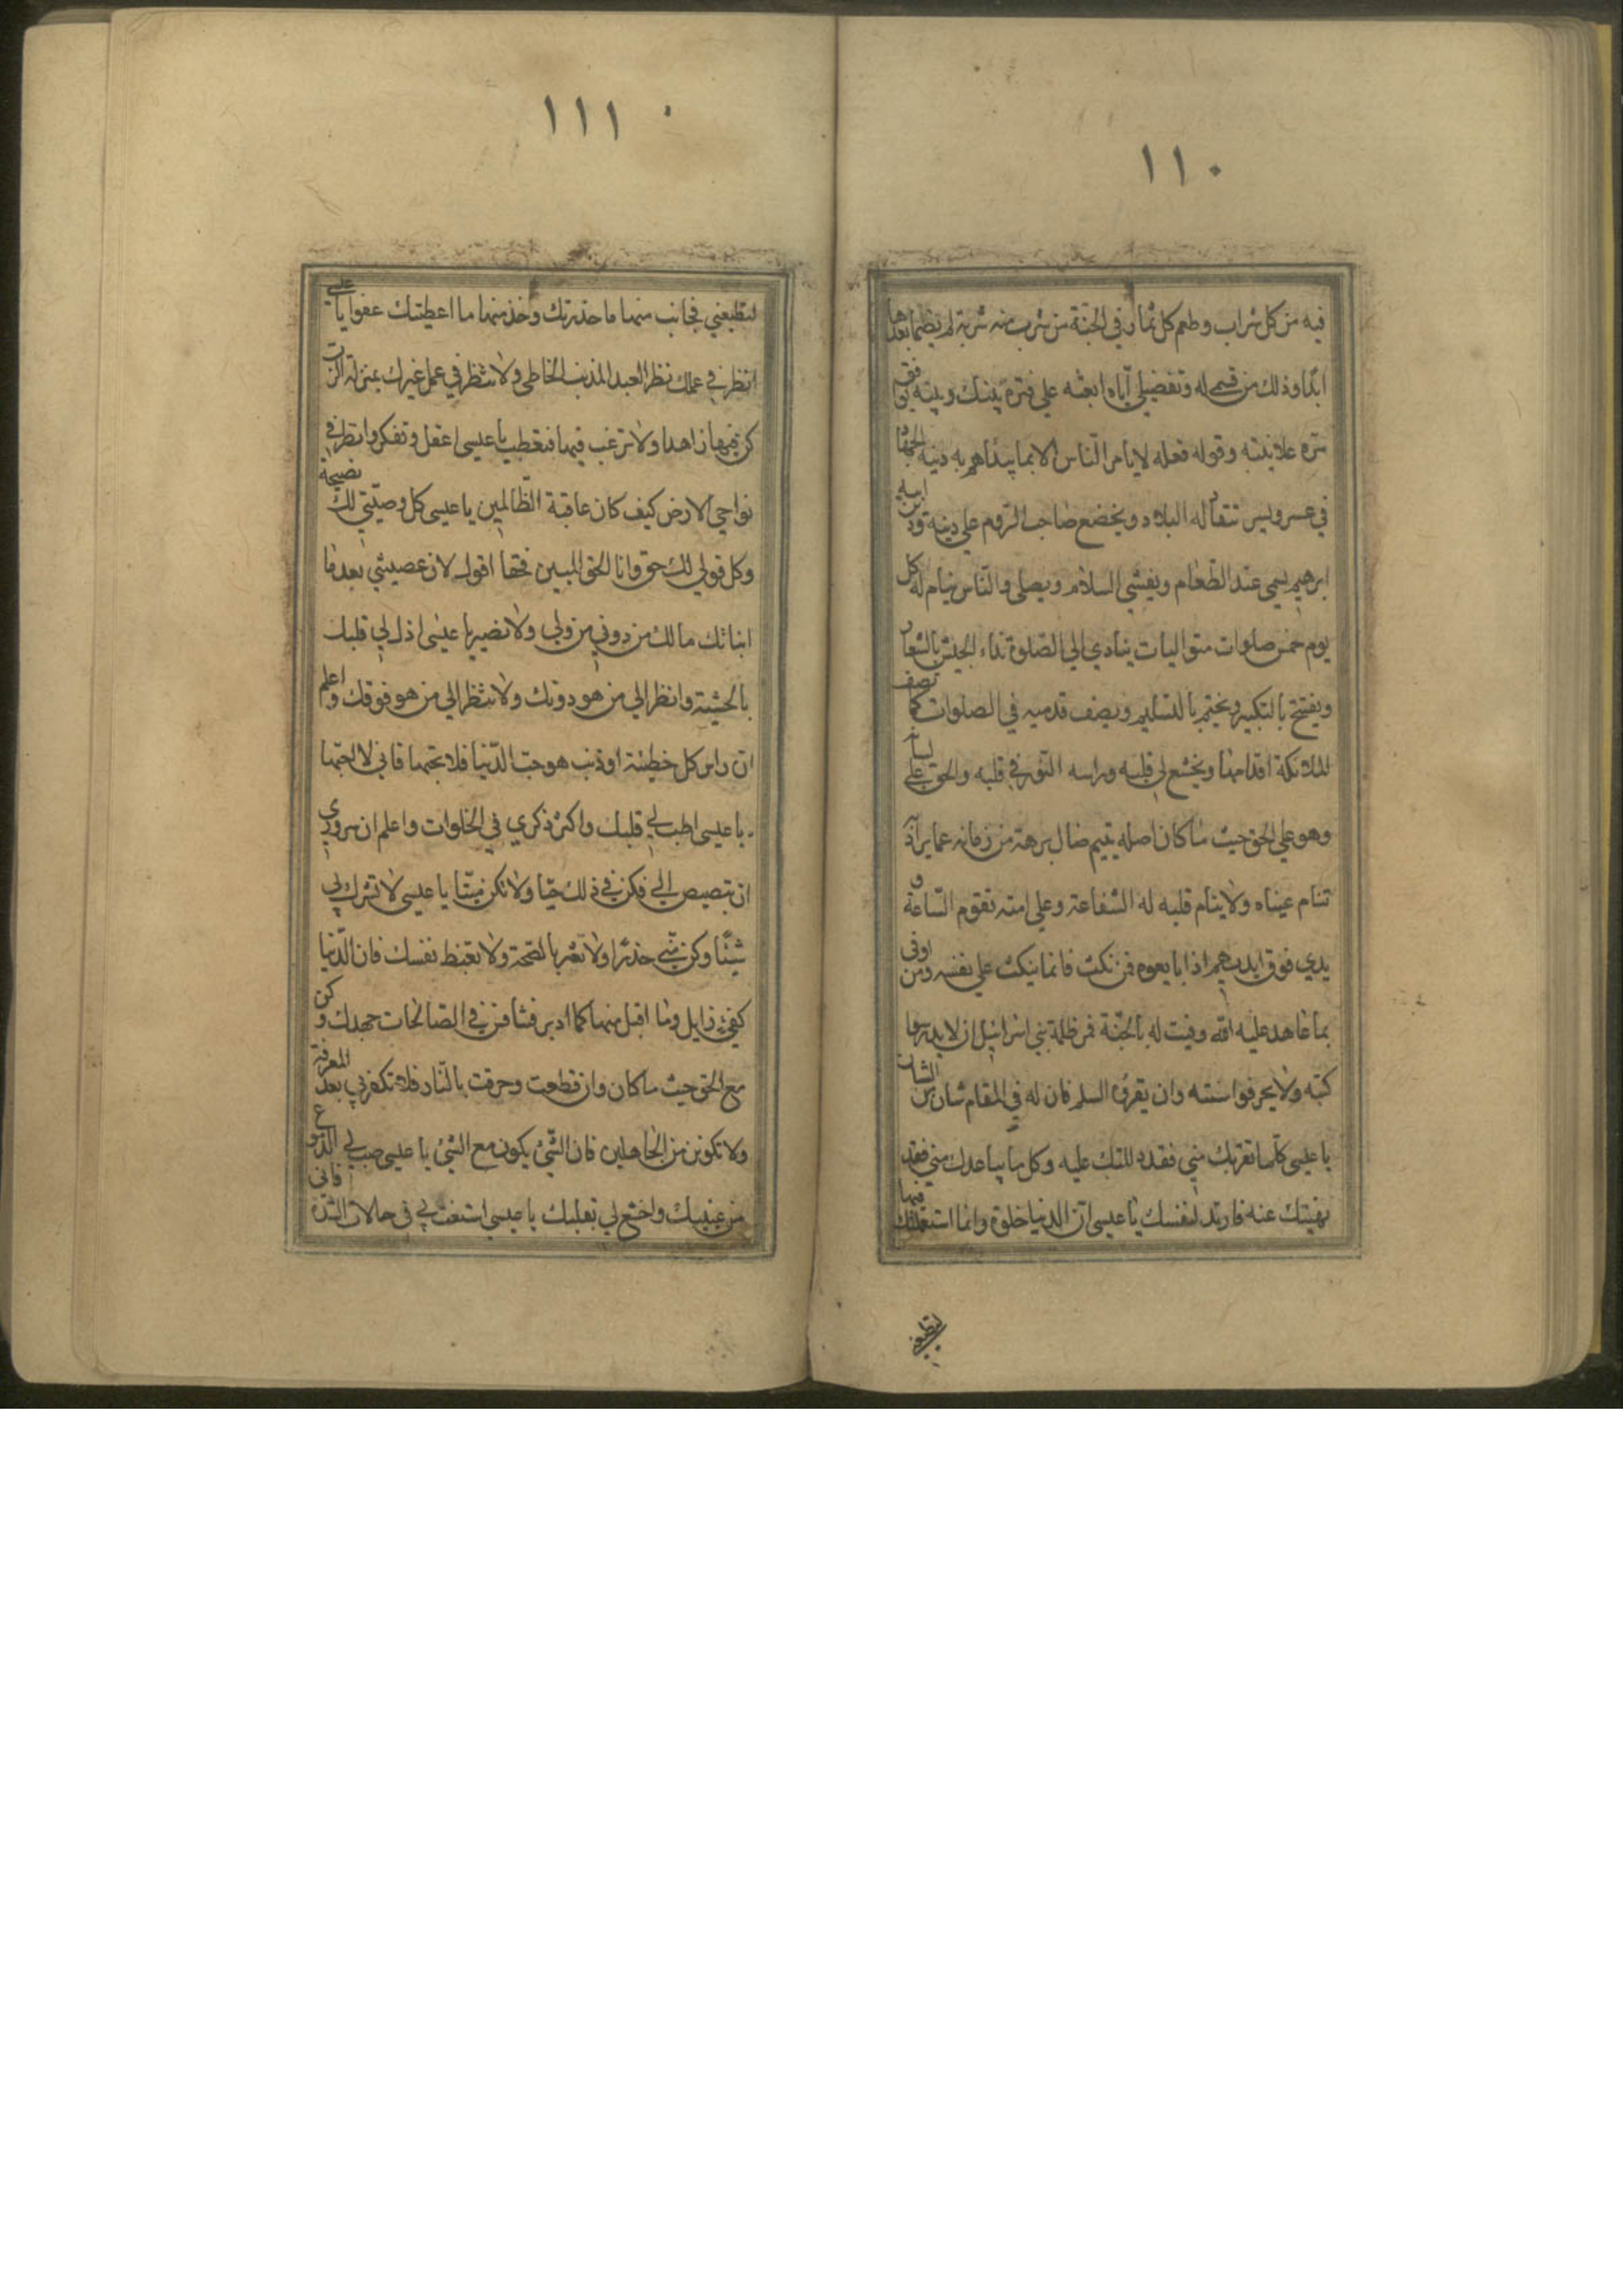 ١١٠
فيه من كل شراب وطعم كل ثمار في الجنة من شرب منه شربة لم يظمأ بعدها
ابدا وذلك من قسمي له وتفضيلي اياه ابعثه علي فترة بينك وبينه يوافق
سره علانيته وقوله فعله لا يامر الناس الا بما يبداهم به دينه الجهاد
في عسر ويسر تنقاد له البلاد ويخضع صاحب الروم علي دينه ودين ابيه
ابرهيم يسمي عند الطعام ويفشي السلام ويصلي والناس نيام له كل
يوم خمس صلوات متواليات ينادي الي الصلوة نداء الجيش بالشعار
ويفتتح بالتكبير ويختم بالتسليم ويصف قدميه في الصلوات كما تصف
الملائكة اقدامها ويخشع لي قلبه وراسه النور في قلبه والحق علي لسانه
وهو علي الحق حيث ما كان اصله يتيم ضال برهة من زمانه عما يراد
تنام عيناه ولا ينام قلبه له الشفاعة وعلي امته تقوم الساعة و
يدي فوق ايديهم اذا بايعوه فمن نكث فانما ينكث علي نفسه ومن اوفى
بما عاهد عليه الله وفيت له بالجنة فمر ظلمة بني اسرائيل ان لا يدرسوا
كتبه ولا يحرفوا سنته وان يقرؤه السلم فان له في المقام شان من الشان
يا عيسى كلما يقربك مني فقد دللتك عليه وكل ما يباعدك مني فقد
نهيتك عنه فارتد لنفسك يا عيسى ان الدنيا حلوة وانما استعملتك فيها
لتطيعني
١١١
لتطيعني فجانب منها ما حذرتك وخذ منها ما اعطيتك عفوا يا عيسى
انظر في عملك نظر العبد المذنب الخاطي ولا تنظر في عمل غيرك بمنزلة الرب
كن فيها زاهدا ولا ترغب فيها فتعطب يا عيسى اعقل وتفكر وانظر في
نواحي الارض كيف كان عاقبة الظالمين يا عيسى كل وصيتي لك نصيحة
وكل قولي لك حق وانا الحق المبين فحقا اقول لان عصيتني بعد ما
انباتك ما لك من دوني من ولي ولا نصير يا عيسى اذل لي قلبك
بالخشية وانظر الي من هو دونك ولا تنظر الي من هو فوقك واعلم
ان راس كل خطيئة او ذنب هو حب الدنيا فلا تحبها فاني لا احبها
يا عيسى اطب لي قلبك واكثر ذكري في الخلوات واعلم ان سروري
ان تبصبص الي فكن في ذلك حيا ولا تكن ميتا يا عيسى لا تشرك بي
شيئا وكن مني حذرا ولا تغتر بالصحة ولا تغبط نفسك فان الدنيا
كفئ زايل وما اقبل منها كما ادبر فنافس في الصالحات جهدك وكن
مع الحق حيث ما كان وان قطعت وحرقت بالنار فلا تكفر بي بعد المعرفة
ولا تكونن من الجاهلين فان الشئ يكون مع الشئ يا عيسى صب لي الدموع
من عينيك واخشع لي بقلبك يا عيسى استغث بي في حالات الشدة فاني